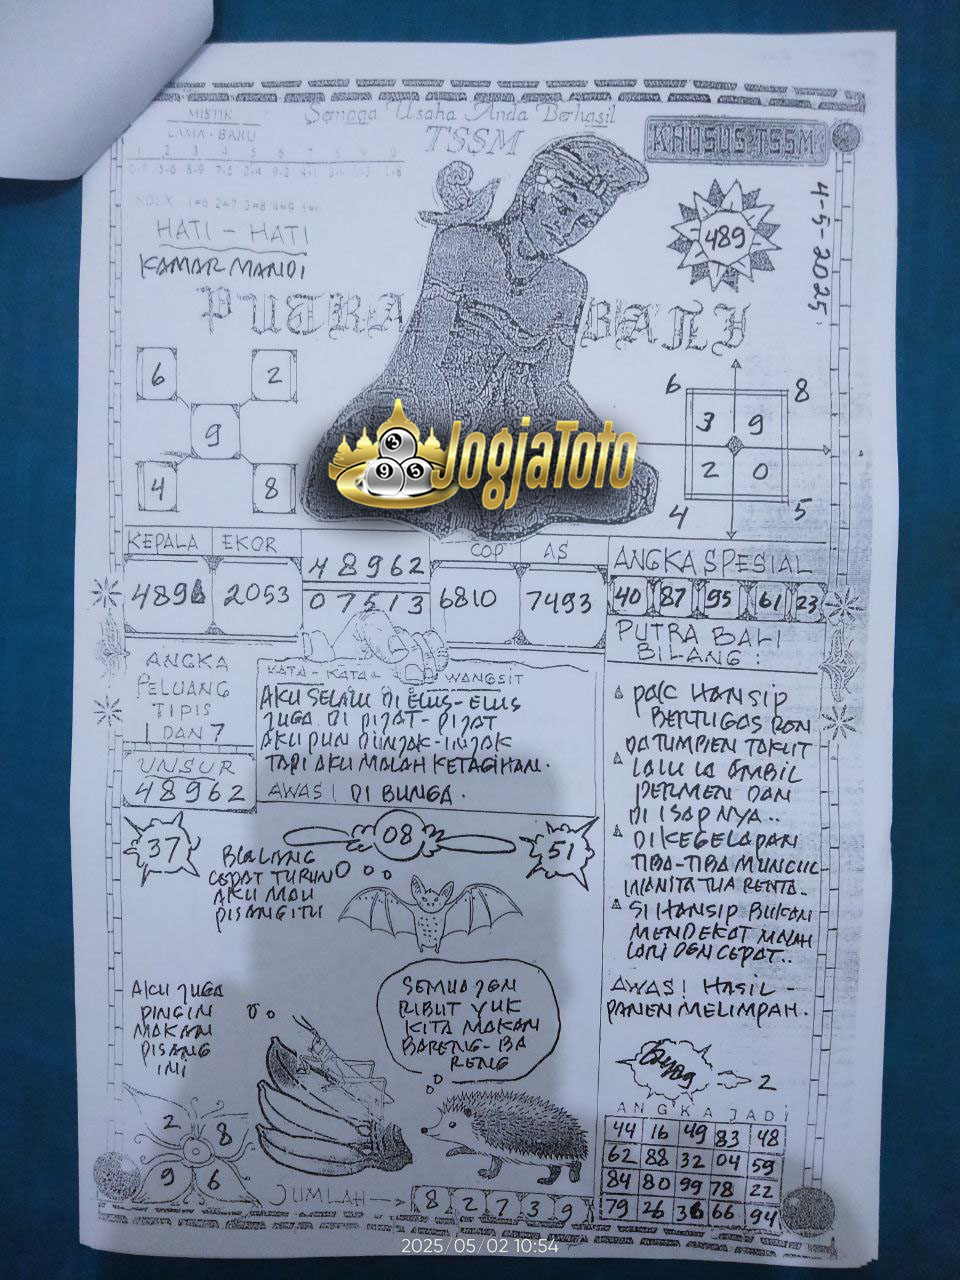 Semoga Usaha Anda Berhasil
TSSM
MISTIK
LAMA - BARU
1 2 3 4 5 6 7 8 9 0
KHUSUS TSSM
4-5-2025
489
HATI - HATI
KAMAR MANDI
PUTRA BALI
6 2
9
4 8
6 8
3 9
2 0
4 5
JogjaToto
3 9 5
KEPALA EKOR
2053
48962
07513
COP AS
6810 7493
ANGKA SPESIAL
40 87 95 61 23
ANGKA
PELUANG
TIPIS
1 DAN 7
UNSUR
48962
KATA - KATA WANGSIT
AKU SELALU DI ELUS-ELUS
JUGA DI PIJAT-PIJAT
AKU PUN DIINJAK-INJAK
TAPI AKU MALAH KETAGIHAN.
AWAS! DI BUNGA.
PUTRA BALI
BILANG:
PAK HANSIP
BERTUGAS RON
DA TUMPIEN TAKUT
LALU IA AMBIL
PERMEN DAN
DI ISAP NYA..
DI KEGELAPAN
TIBA-TIBA MUNCUL
WANITA TUA RENTA.
SI HANSIP BUKAN
MENDEKAT MALAH
LARI DGN CEPAT..
AWAS! HASIL -
PANEN MELIMPAH.
37
08
51
CEPAT TURUN
AKU MAU
PISANG ITU
AKU JUGA
PINGIN
MAKAN
PISANG
INI
SEMUA JGN
RIBUT YUK
KITA MAKAN
BARENG-BA
RENG
2
2 8
9 6
JUMLAH
8 2 7 3 9
ANGKA JADI
44 16 49 83 48
62 88 32 04 59
84 80 99 78 22
79 26 36 66 94
2025/05/02 10:54